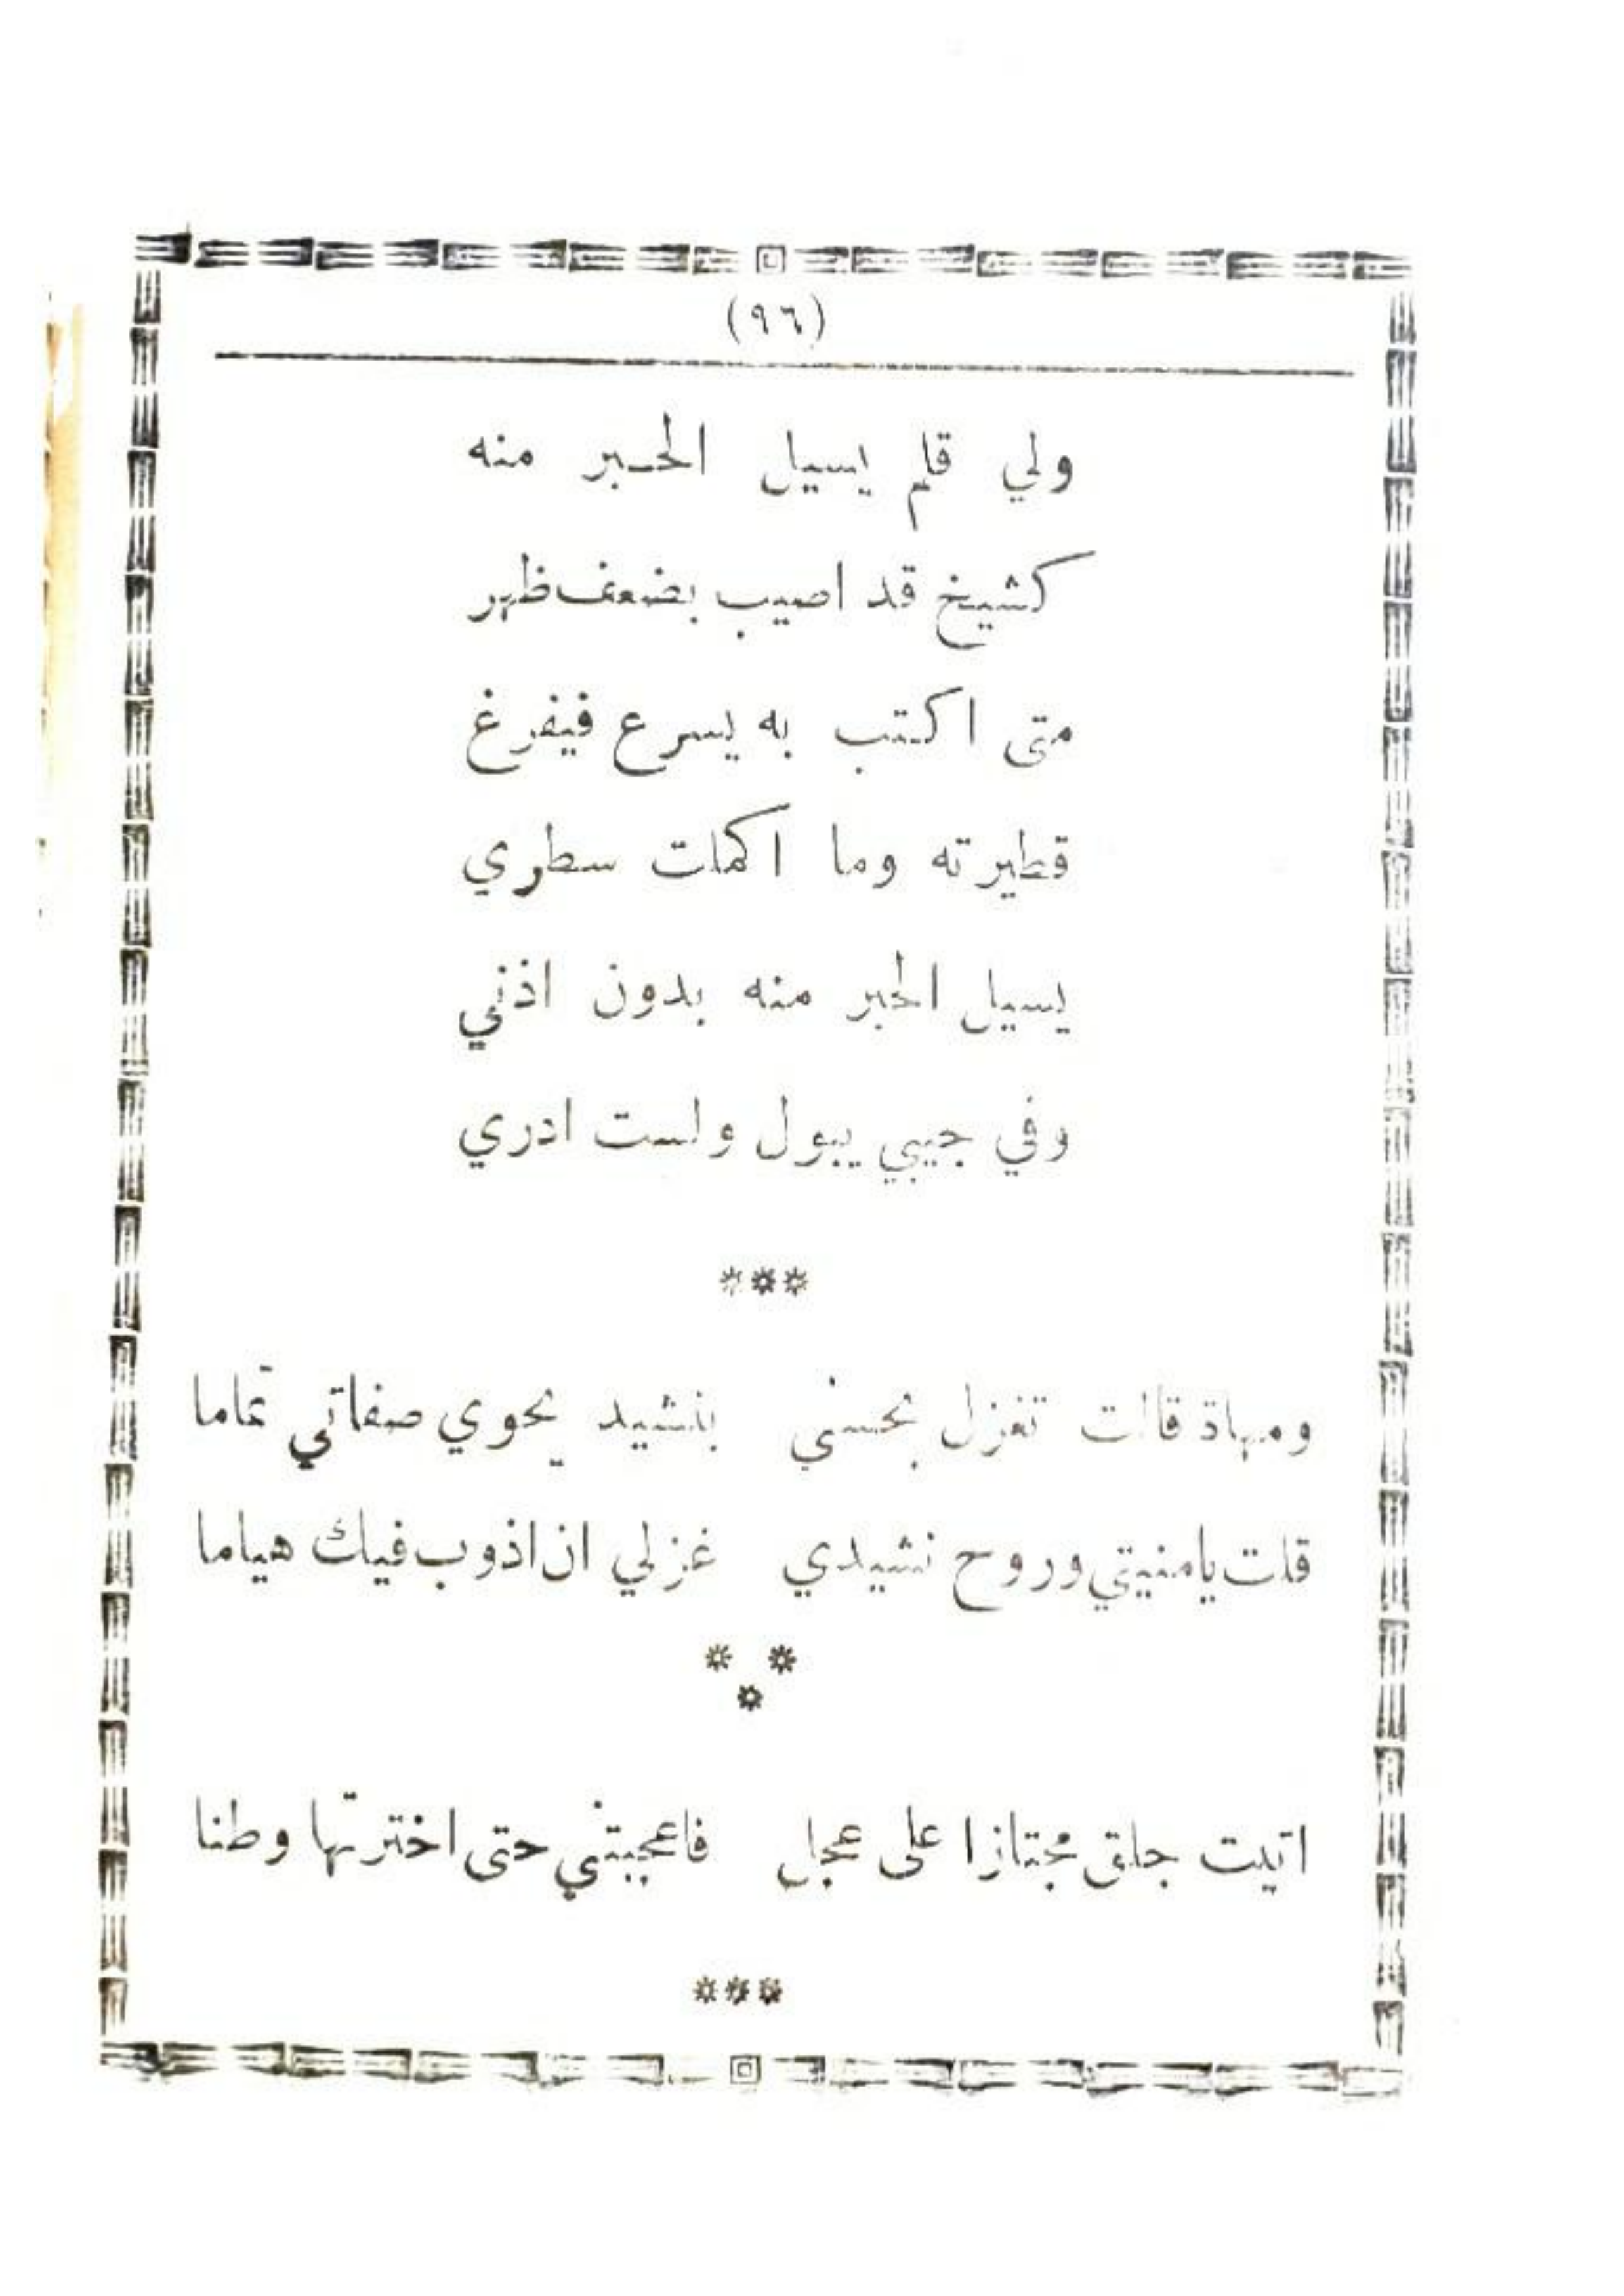 (٩٦)
ولي قلم يسيل الحـبر منه
كشيخ قد اصيب بضعف ظهر
متى اكتب به يسرع فيفرغ
قطيرته وما اكملت سطري
يسيل الحبر منه بدون اذني
وفي جيبي يبول ولست ادري
***
ومهاة قالت تغزل بحسني بنشيد يحوي صفاتي تماما
قلت يامنيتي وروح نشيدي غزلي ان اذوب فيك هياما
* *
*
اتيت جلق مجتازا على عجل فاعجبتني حتى اخترتها وطنا
***